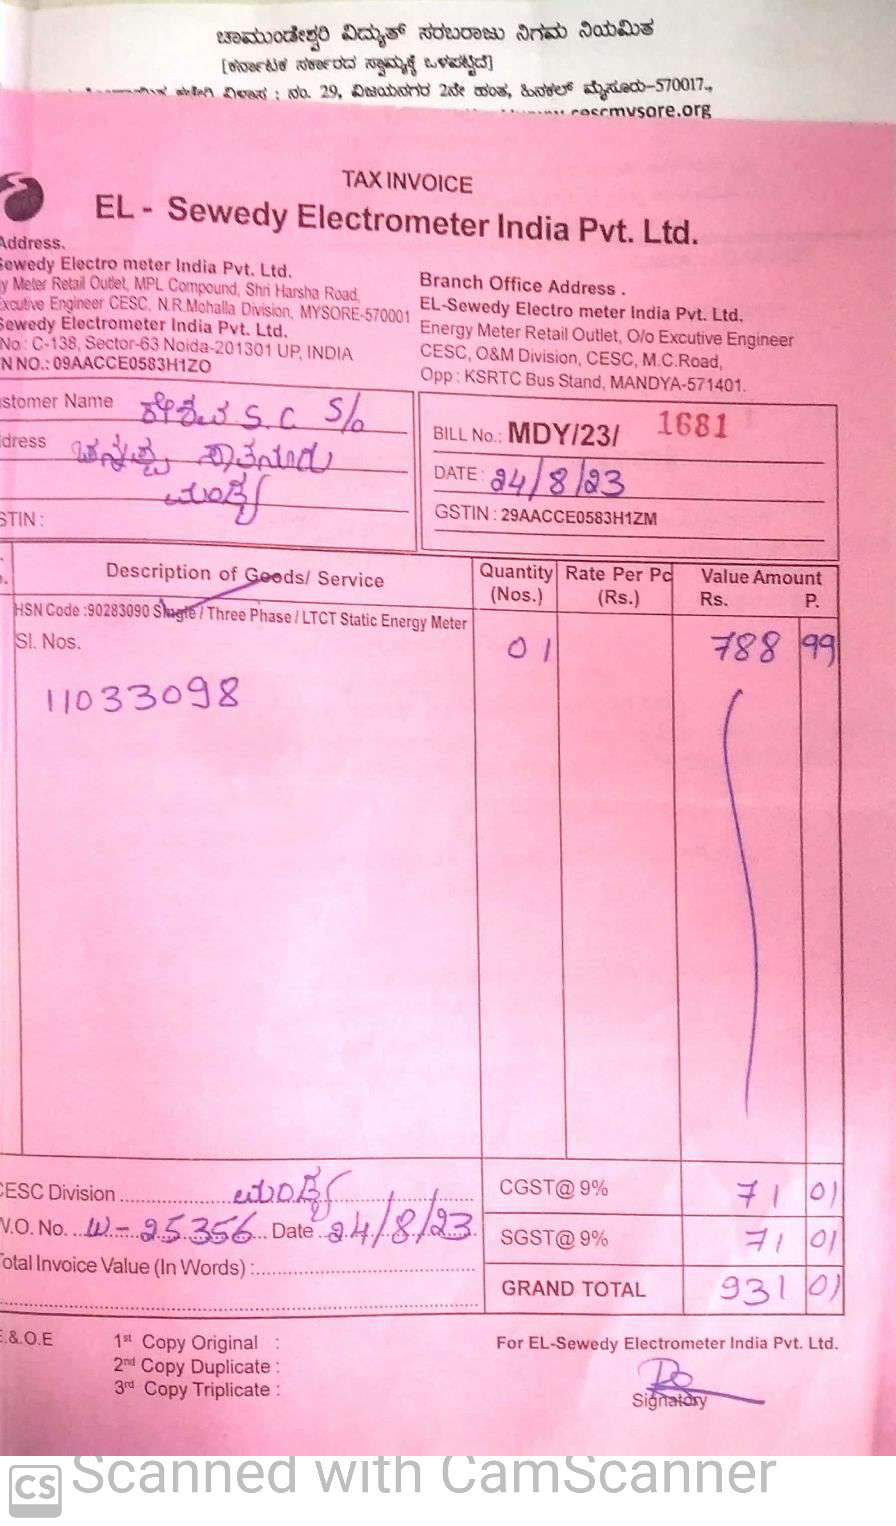 ಚಾಮುಂಡೇಶ್ವರಿ ವಿದ್ಯುತ್ ಸರಬರಾಜು ನಿಗಮ ನಿಯಮಿತ
[ಕರ್ನಾಟಕ ಸರ್ಕಾರದ ಸ್ವಾಮ್ಯಕ್ಕೆ ಒಳಪಟ್ಟಿದೆ]
ಕಚೇರಿ ವಿಳಾಸ : ನಂ. 29, ವಿಜಯನಗರ 2ನೇ ಹಂತ, ಹಿನಕಲ್ ಮೈಸೂರು-570017.,
cescmysore.org
TAX INVOICE
EL - Sewedy Electrometer India Pvt. Ltd.
Address.
Sewedy Electro meter India Pvt. Ltd.
y Meter Retail Outlet, MPL Compound, Shri Harsha Road,
Excutive Engineer CESC, N.R.Mohalla Division, MYSORE-570001
Sewedy Electrometer India Pvt. Ltd.
No : C-138, Sector-63 Noida-201301 UP, INDIA
N NO.: 09AACCE0583H1ZO
Branch Office Address .
EL-Sewedy Electro meter India Pvt. Ltd.
Energy Meter Retail Outlet, O/o Excutive Engineer
CESC, O&M Division, CESC, M.C.Road,
Opp : KSRTC Bus Stand, MANDYA-571401.
stomer Name S.C S/o
dress
ಮಂಡ್ಯ
STIN :
BILL No.: MDY/23/ 1681
DATE : 24/8/23
GSTIN : 29AACCE0583H1ZM
Description of Goods/ Service Quantity (Nos.) Rate Per Pc (Rs.) Value Amount Rs. P.
HSN Code :90283090 Single / Three Phase / LTCT Static Energy Meter
Sl. Nos. 01 788 99
11033098
CESC Division ಮಂಡ್ಯ CGST@ 9% 71 01
W.O. No. W-25356 Date 24/8/23 SGST@ 9% 71 01
Total Invoice Value (In Words) :
GRAND TOTAL 931 01
E.&.O.E 1st Copy Original :
2nd Copy Duplicate :
3rd Copy Triplicate :
For EL-Sewedy Electrometer India Pvt. Ltd.
Signatory
CS Scanned with CamScanner